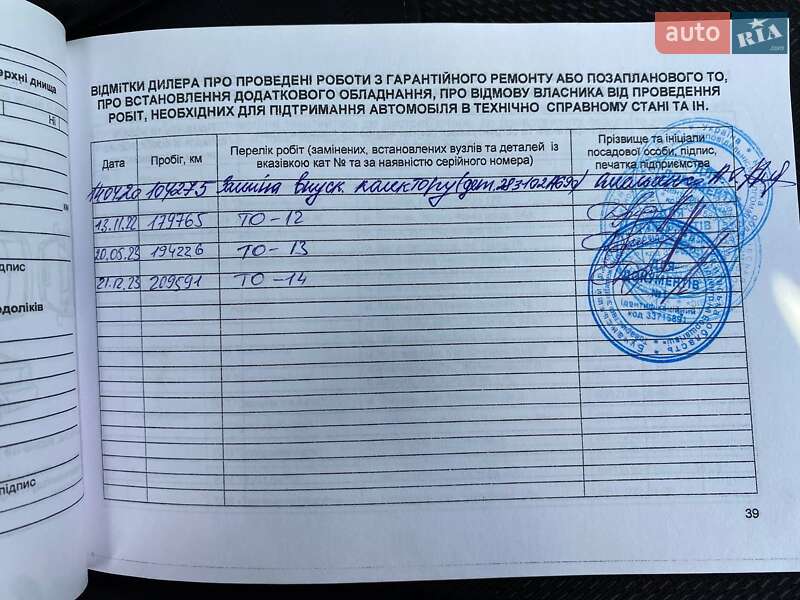 auto RIA
ерхні днища
Ні
ВІДМІТКИ ДИЛЕРА ПРО ПРОВЕДЕНІ РОБОТИ З ГАРАНТІЙНОГО РЕМОНТУ АБО ПОЗАПЛАНОВОГО ТО,
ПРО ВСТАНОВЛЕННЯ ДОДАТКОВОГО ОБЛАДНАННЯ, ПРО ВІДМОВУ ВЛАСНИКА ВІД ПРОВЕДЕННЯ
РОБІТ, НЕОБХІДНИХ ДЛЯ ПІДТРИМАННЯ АВТОМОБІЛЯ В ТЕХНІЧНО СПРАВНОМУ СТАНІ ТА ІН.
Дата
Пробіг, км
Перелік робіт (замінених, встановлених вузлів та деталей із
вказівкою кат № та за наявністю серійного номера)
Прізвище та ініціали
посадової особи, підпис,
печатка підприємства
14.04.20 104275 Заміна впуск. колектору (дет.
13.11.22 179765 ТО-12
20.05.23 194226 ТО-13
21.12.23 209591 ТО-14
ДОКУМЕНТІВ
Ідентифікаційний
код
підпис
одоліків
підпис
39